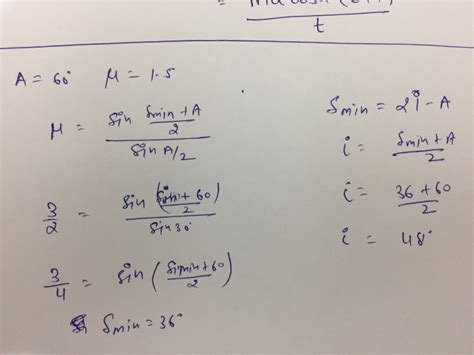 t
A = 60° μ = 1.5
μ = sin (δmin + A)/2 / sin A/2
3/2 = sin (δmin + 60)/2 / sin 30
3/4 = sin (δmin + 60 / 2)
δmin = 36°
δmin = 2i - A
i = δmin + A / 2
i = 36 + 60 / 2
i = 48°